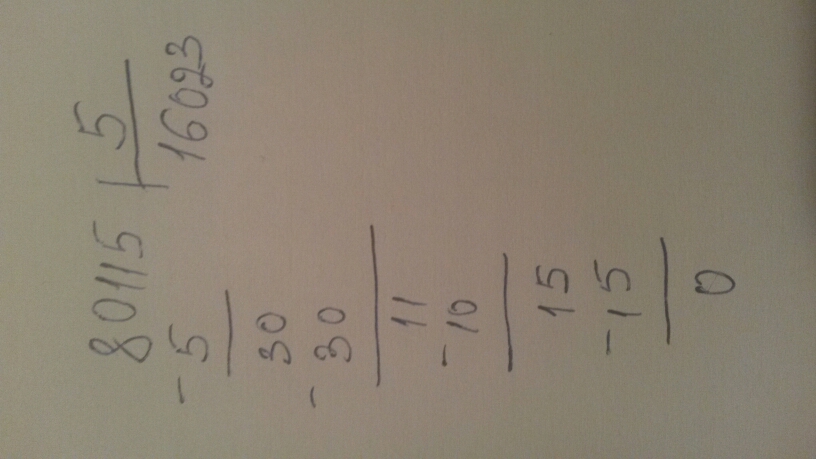 80115 | 5
-5 16023
30
-30
11
-10
15
-15
0